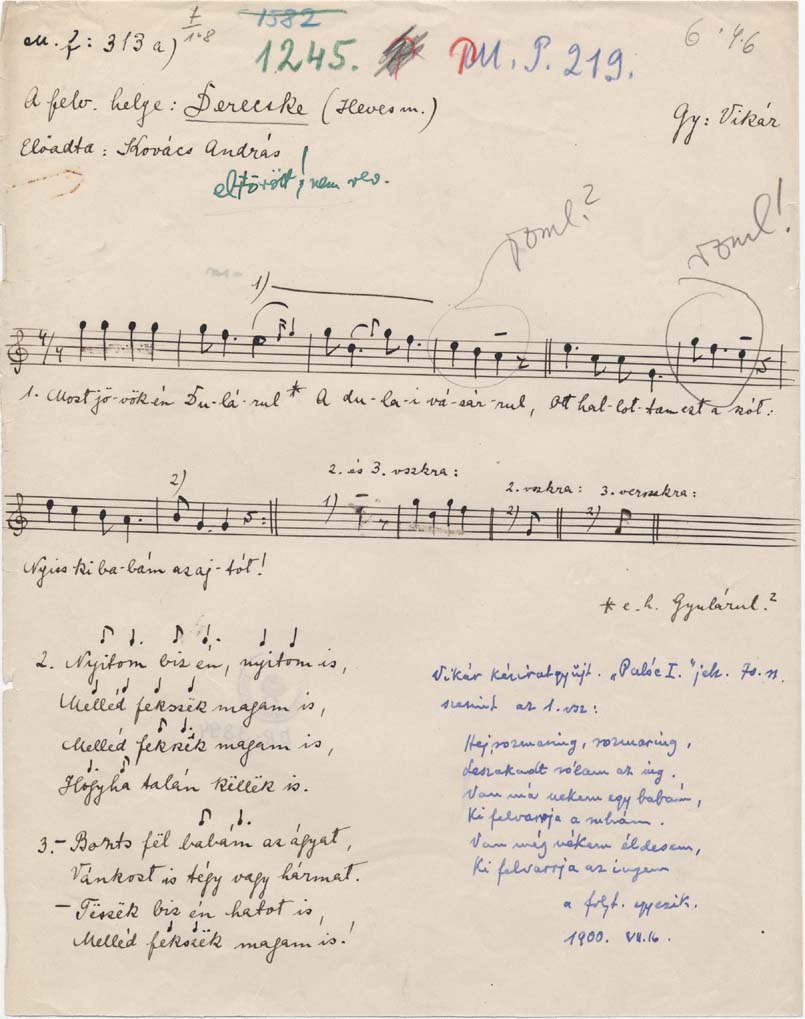 1582
M. F: 313 a)
1245. M. P. 219.
A felv. helye: Derecske (Heves m.)
Gy: Vikár
Előadta: Kovács András
eltörött! nem rev.
1)
4/4
1. Most jö-vök én Du-lá-rul * A du-la-i vá-sár-rul, Ott hal-lot-tam ezt a szót:
2. és 3. vszkra:
2) 1) 2. vszkra: 3. versszakra:
2) 2)
Nyiss ki ba-bám az aj-tót!
* e. h. Gyulárul?
2. Nyitom biz én, nyitom is,
Melléd fekszëk magam is,
Melléd fekszëk magam is,
Hogyha talán këllëk is.
3.- Bonts fël babám az ágyat,
Vánkost is tégy vagy hármat.
- Tëszëk biz én hatot is,
Melléd fekszëk magam is!
Vikár kéziratgyűjt. "Palóc I." jelz.
szerint az 1. vsz:
Hej, rozmaring, rozmaring,
Leszakadt rólam az ing.
Van má nekem egy babám,
Ki felvarrja a subám.
Van még nékem édesem,
Ki felvarrja az ingem
a folyt. egyezik.
1900. VII. 16.